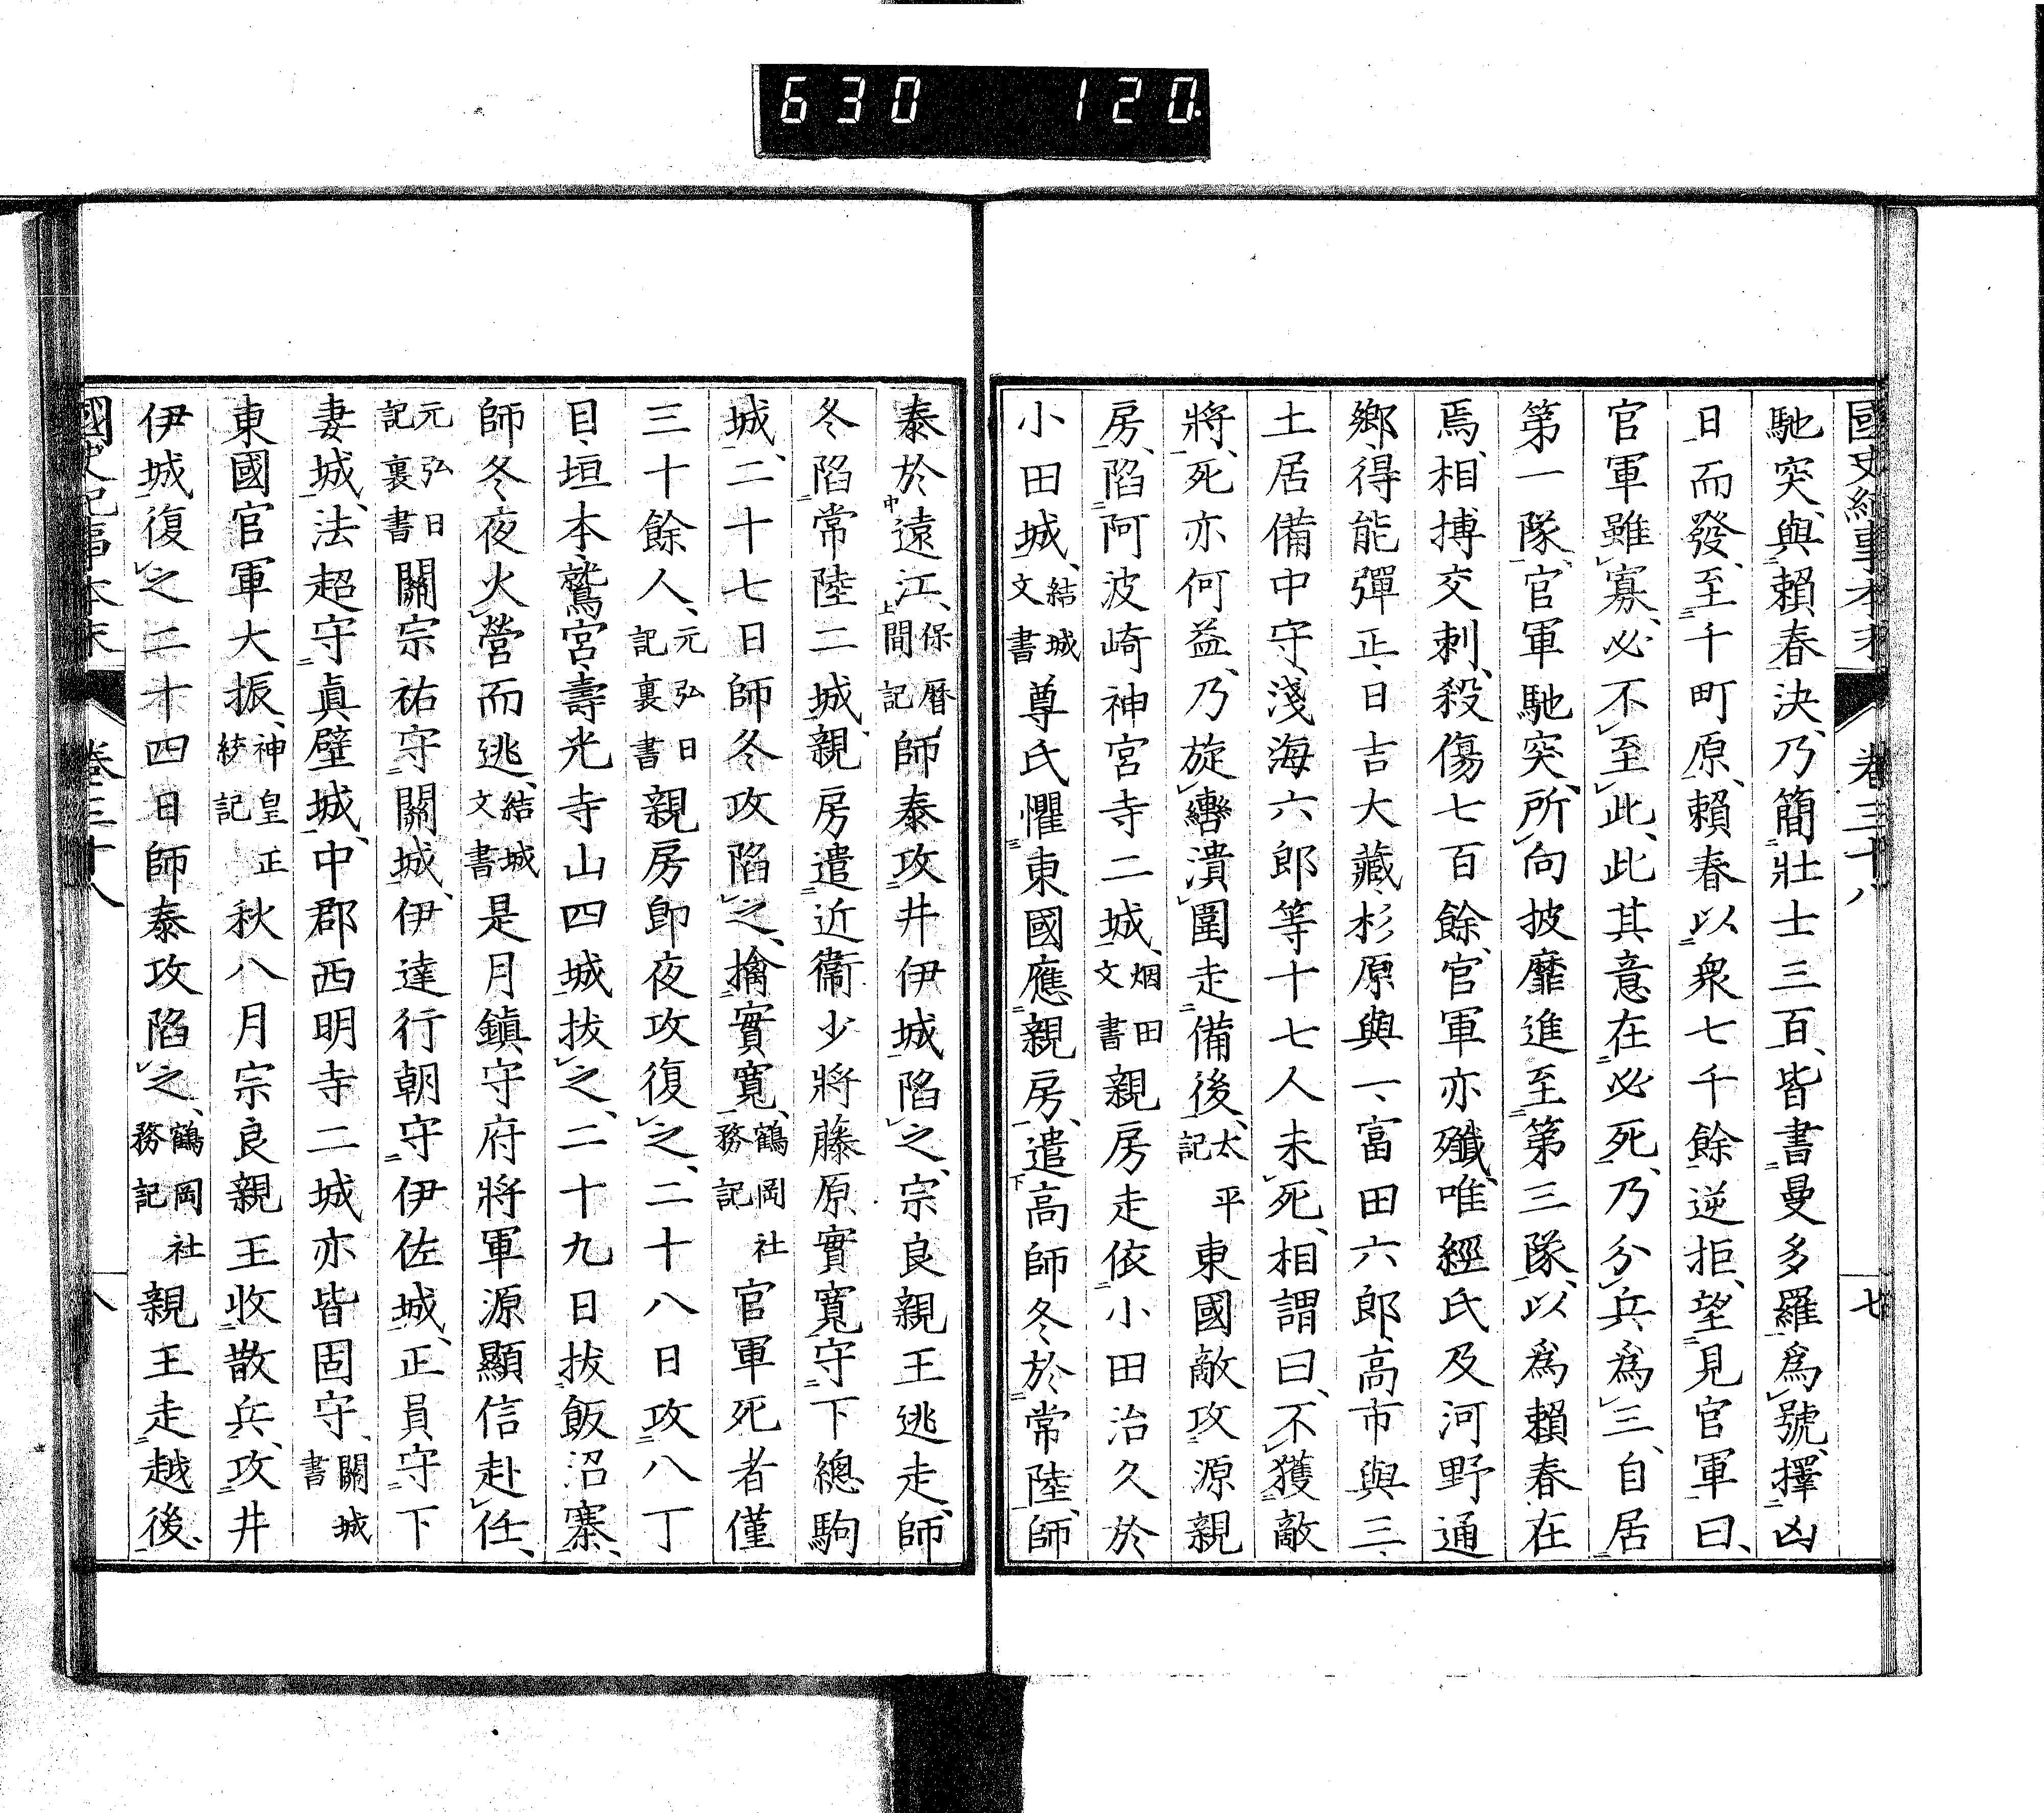 630 120.
國史紀事本末 卷三十八 七
馳突、與賴春決、乃簡壯士三百、皆書曼多羅爲號、擇凶
日而發、至千町原、賴春以衆七千餘逆拒、望見官軍曰、
官軍雖寡、必不至此、此其意在必死、乃分兵爲三、自居
第一隊、官軍馳突、所向披靡進至第三隊、以爲賴春在
焉、相搏交刺、殺傷七百餘、官軍亦殲、唯經氏及河野通
鄉、得能彈正、日吉大藏、杉原與一、富田六郎、高市與三、
土居備中守、淺海六郎等十七人未死、相謂曰、不獲敵
將、死亦何益、乃旋轡潰圍走備後、太平記 東國敵攻源親
房、陷阿波崎神宮寺二城、烟田文書 親房走依小田治久於
小田城、結城文書 尊氏懼東國應親房、遣高師冬於常陸、師
泰於遠江、保曆間記 師泰攻井伊城陷之、宗良親王逃走、師
冬陷常陸二城、親房遣近衞少將藤原實寬守下總駒
城、二十七日師冬攻陷之、擒實寬、鶴岡社務記 官軍死者僅
三十餘人、元弘日記裏書 親房卽夜攻復之、二十八日攻八丁
目、垣本、鷲宮、壽光寺山四城拔之、二十九日拔飯沼寨、
師冬夜火營而逃、結城文書 是月鎭守府將軍源顯信赴任、
元弘日記裏書 關宗祐守關城、伊達行朝守伊佐城、正員守下
妻城、法超守眞壁城、中郡西明寺二城亦皆固守、關城書
東國官軍大振、神皇正統記 秋八月宗良親王收散兵、攻井
伊城復之二十四日師泰攻陷之、鶴岡社務記 親王走越後、
國史紀事本末 卷三十八 八